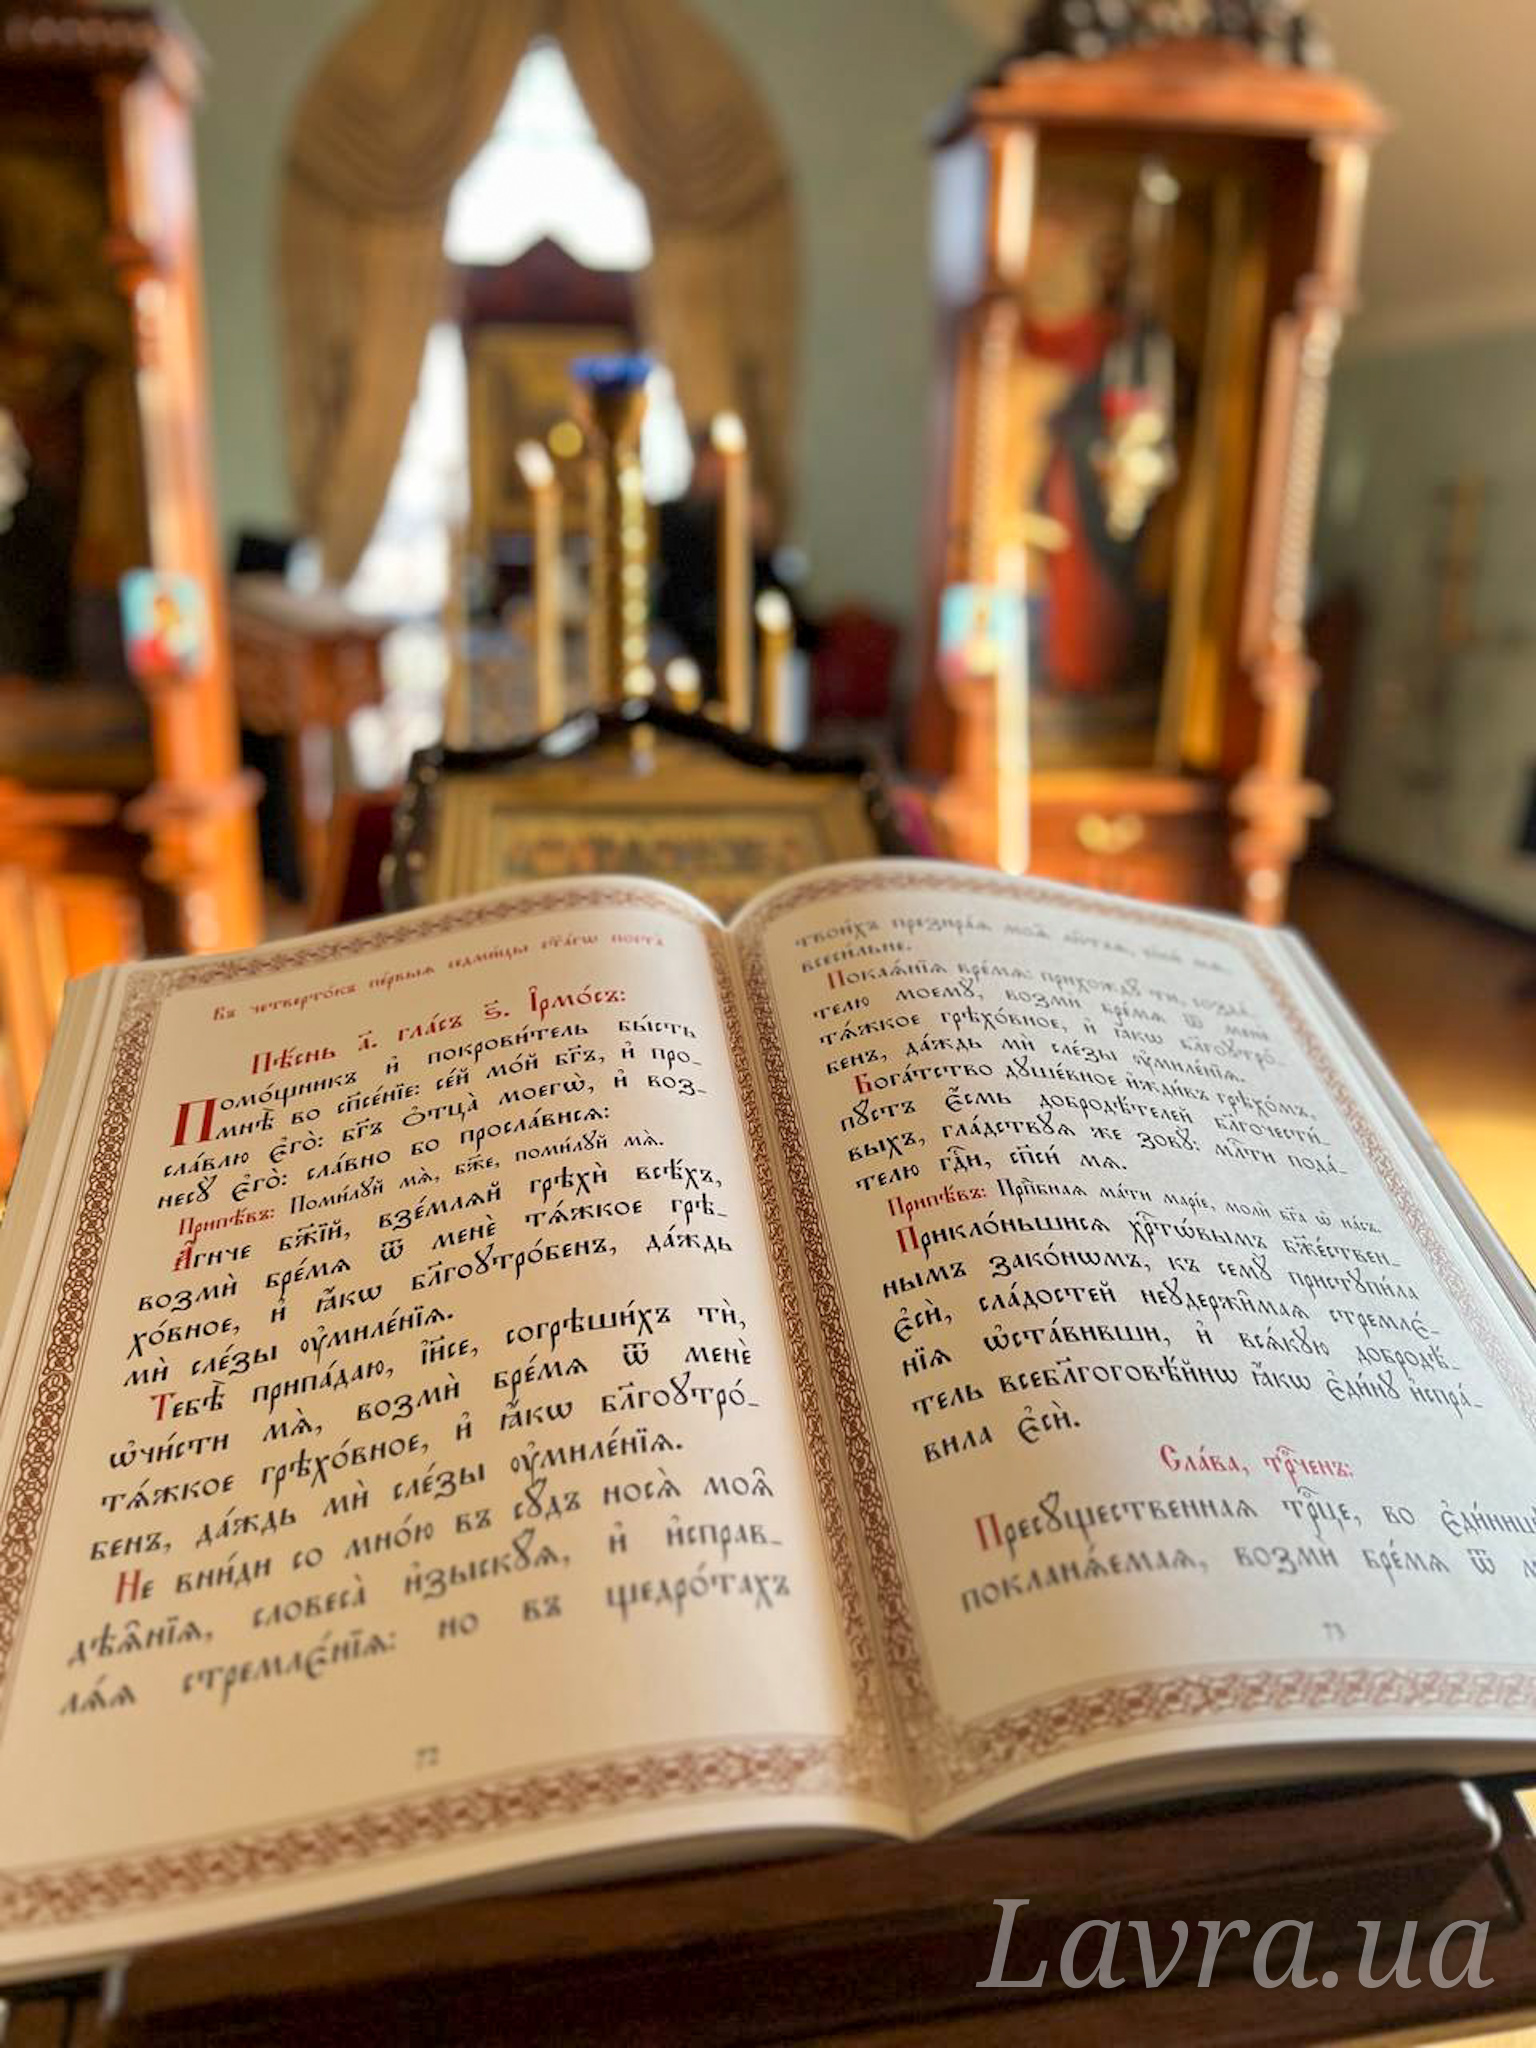 Въ четверто́къ пе́рвыѧ седми́цы ст҃а́гѡ поста̀
Пѣ́снь а҃. гла́съ ѕ҃. І҆рмо́съ:
Помо́щникъ и҆ покрови́тель бы́сть
мнѣ̀ во сп҃се́нїе: се́й мо́й бг҃ъ, и҆ про-
сла́влю є҆го̀: бг҃ъ ѻ҆тца̀ моегѡ̀, и҆ воз-
несꙋ̀ є҆го̀: сла́внѡ бо просла́висѧ:
Припѣ́въ: Поми́лꙋй мѧ̀, бж҃е, поми́лꙋй мѧ̀.
А҆́гнче бж҃їй, взе́млѧй грѣхѝ всѣ́хъ,
возмѝ бре́мѧ ѿ менє̀ тѧ́жкое грѣ-
хо́вное, и҆ ꙗ҆́кѡ бл҃гоꙋтро́бенъ, да́ждь
мѝ сле́зы ᲂу҆миле́нїѧ.
Тебѣ̀ припа́даю, і҆и҃се, согрѣши́хъ тѝ,
ѡ҆чи́сти мѧ̀, возмѝ бре́мѧ ѿ менє̀
тѧ́жкое грѣхо́вное, и҆ ꙗ҆́кѡ бл҃гоꙋтро́-
бенъ, да́ждь мѝ сле́зы ᲂу҆миле́нїѧ.
Не вни́ди со мно́ю въ сꙋ́дъ носѧ̀ моѧ̑
дѣѧ̑нїѧ, словеса̀ и҆зыскꙋ́ѧ, и҆ и҆справ-
лѧ́ѧ стремлє́нїѧ: но въ щедро́тахъ
72
твои́хъ презира́ѧ моѧ̑ лю̑таѧ, сп҃сѝ мѧ̀,
всеси́льне.
Покаѧ́нїѧ вре́мѧ: прихождꙋ́ ти, созда́-
телю моемꙋ̀, возмѝ бре́мѧ ѿ менє̀
тѧ́жкое грѣхо́вное, и҆ ꙗ҆́кѡ бл҃гоꙋтро́-
бенъ, да́ждь мѝ сле́зы ᲂу҆миле́нїѧ.
Бога́тство дꙋше́вное и҆ждив́ъ грѣхо́мъ,
пꙋ́стъ є҆́смь добродѣ́телей бл҃гочести́-
выхъ, гла́дствꙋѧ же зовꙋ̀: мл҃сти пода́-
телю гдⷭ҇и, сп҃си́ мѧ.
Припѣ́въ: Прпⷣбнаѧ ма́ти марі́е, молѝ бг҃а ѡ҆ на́съ.
Прикло́ньшисѧ хрⷭ҇тѡ́вымъ бж҃е́ствен-
нымъ зако́нѡмъ, къ семꙋ̀ пристꙋпи́ла
є҆сѝ, сла́достей неꙋдержи̑маѧ стремлє́-
нїѧ ѡ҆ста́вивши, и҆ всѧ́кꙋю добродѣ́-
тель всебл҃гоговѣ́йнѡ ꙗ҆́кѡ є҆ди́нꙋ и҆спра́-
вила є҆сѝ.
Сла́ва, трⷪ҇ченъ:
Пресꙋ́щественнаѧ трⷪ҇це, во є҆ди́ницѣ
покланѧ́емаѧ, возмѝ бре́мѧ ѿ
73
Lavra.ua